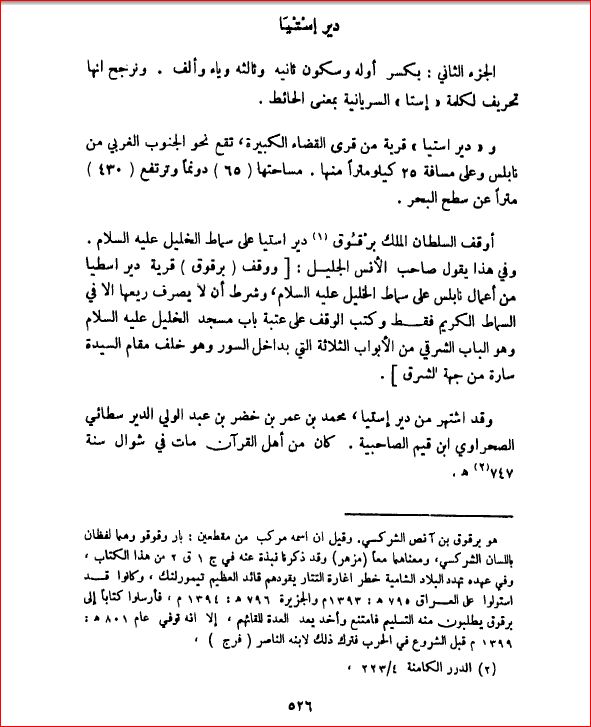 دير إستيا
الجزء الثاني : بكسر أوله وسكون ثانيه وثالثه وياء وألف . ونرجح انها
تحريف لكلمة « إستا » السريانية بمعنى الحائط .
و « دير استيا » قرية من قرى القضاء الكبيرة، تقع نحو الجنوب الغربي من
نابلس وعلى مسافة ٢٥ كيلومتراً منها . مساحتها ( ٦٥ ) دونماً وترتفع ( ٤٣٠ )
متراً عن سطح البحر .
أوقف السلطان الملك برقوق (١) دير استيا على سماط الخليل عليه السلام .
وفي هذا يقول صاحب الأنس الجليل : [ ووقف ( برقوق ) قرية دير اسطيا
من أعمال نابلس على سماط الخليل عليه السلام، وشرط أن لا يصرف ريعها الا في
السماط الكريم فقط وكتب الوقف على عتبة باب مسجد الخليل عليه السلام
وهو الباب الشرقي من الأبواب الثلاثة التي بداخل السور وهو خلف مقام السيدة
سارة من جهة الشرق ] .
وقد اشتهر من دير إستيا، محمد بن عمر بن خضر بن عبد الولي الدير سطائي
الصحراوي ابن قيم الصاحبية . كان من أهل القرآن مات في شوال سنة
٧٤٧(٢) هـ .
هو برقوق بن آنص الشركسي. وقيل ان اسمه مركب من مقطعين : بار وقوقو وهما لفظان
باللسان الشركسي، ومعناهما معاً (مزهر) وقد ذكرنا نبذة عنه في ج ١ ق ٢ من هذا الكتاب ،
وفي عهده تهدد البلاد الشامية خطر اغارة التتار يقودهم قائد العظيم تيمورلنك ، وكانوا قد
استولوا على العراق ٧٩٥ هـ : ١٣٩٣م والجزيرة ٧٩٦ هـ : ١٣٩٤ م ، فأرسلوا كتاباً إلى
برقوق يطلبون منه التسليم فامتنع وأخد يعد العدة للقائهم ، إلا انه توفي عام ٨٠١ هـ :
١٣٩٩ م قبل الشروع في الحرب فترك ذلك لابنه الناصر ( فرج ) ،
(٢) الدرر الكامنة ٢٢٣/٤ ،
٥٢٦